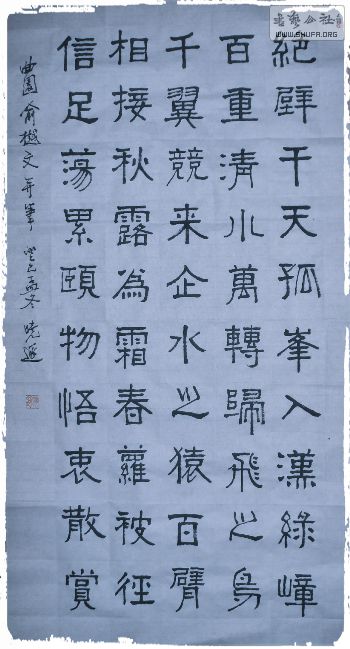 書藝公社
WWW.SHUFA.ORG
絕壁干天孤峯入漢綠嶂
百重清川萬轉歸飛之鳥
千翼競来企水之猿百臂
相接秋露為霜春蘿被徑
信足蕩累頤物悟衷散賞
曲園俞樾文并筆 癸巳孟冬